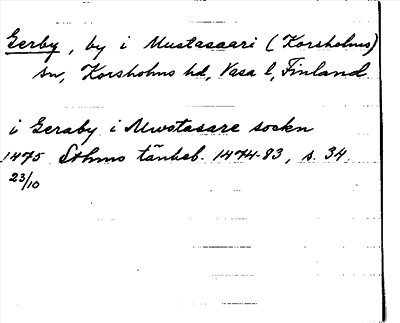 Gerby, by i Mustasaari (Korsholms)
sn, Korsholms hd, Vasa l, Finland
i Geraby i Mwstasare sockn
1475 Sthms tänkeb. 1474-83, s. 34
23/10